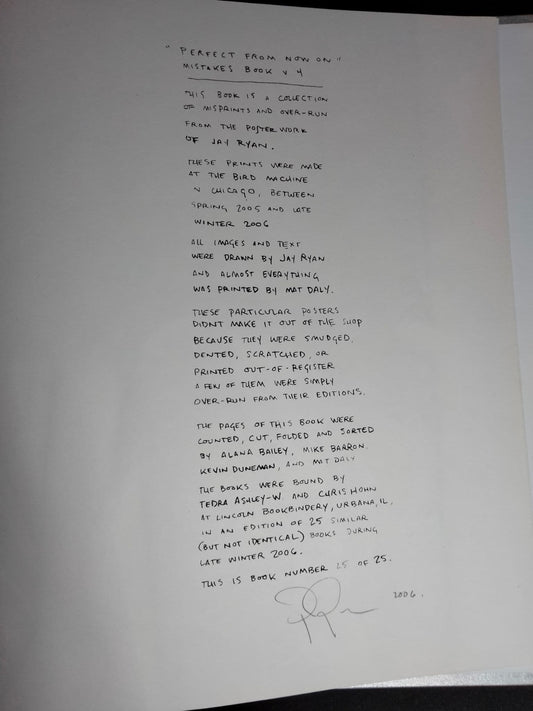 "PERFECT FROM NOW ON"
MISTAKES BOOK V 4
THIS BOOK IS A COLLECTION
OF MISPRINTS AND OVER-RUN
FROM THE POSTER WORK
OF JAY RYAN.
THESE PRINTS WERE MADE
AT THE BIRD MACHINE
IN CHICAGO, BETWEEN
SPRING 2005 AND LATE
WINTER 2006
ALL IMAGES AND TEXT
WERE DRAWN BY JAY RYAN
AND ALMOST EVERYTHING
WAS PRINTED BY MAT DALY.
THESE PARTICULAR POSTERS
DIDN'T MAKE IT OUT OF THE SHOP
BECAUSE THEY WERE SMUDGED,
DENTED, SCRATCHED, OR
PRINTED OUT-OF-REGISTER
A FEW OF THEM WERE SIMPLY
OVER-RUN FROM THEIR EDITIONS.
THE PAGES OF THIS BOOK WERE
COUNTED, CUT, FOLDED AND SORTED
BY ALANA BAILEY, MIKE BARRON,
KEVIN DUNEMAN, AND MAT DALY
THE BOOKS WERE BOUND BY
TEDRA ASHLEY-W. AND CHRIS HOHN
AT LINCOLN BOOKBINDERY, URBANA, IL,
IN AN EDITION OF 25 SIMILAR
(BUT NOT IDENTICAL) BOOKS DURING
LATE WINTER 2006.
THIS IS BOOK NUMBER 25 OF 25.
2006.